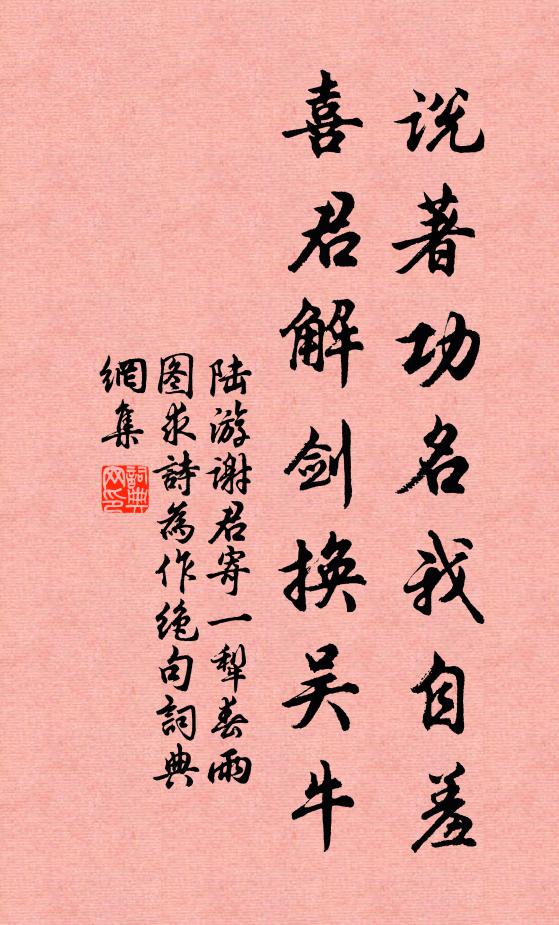 说著功名我自羞
喜君解剑换吴牛
陆游谢君寄一犁春雨
图求詩為作绝句詞典
網集
詞典網印